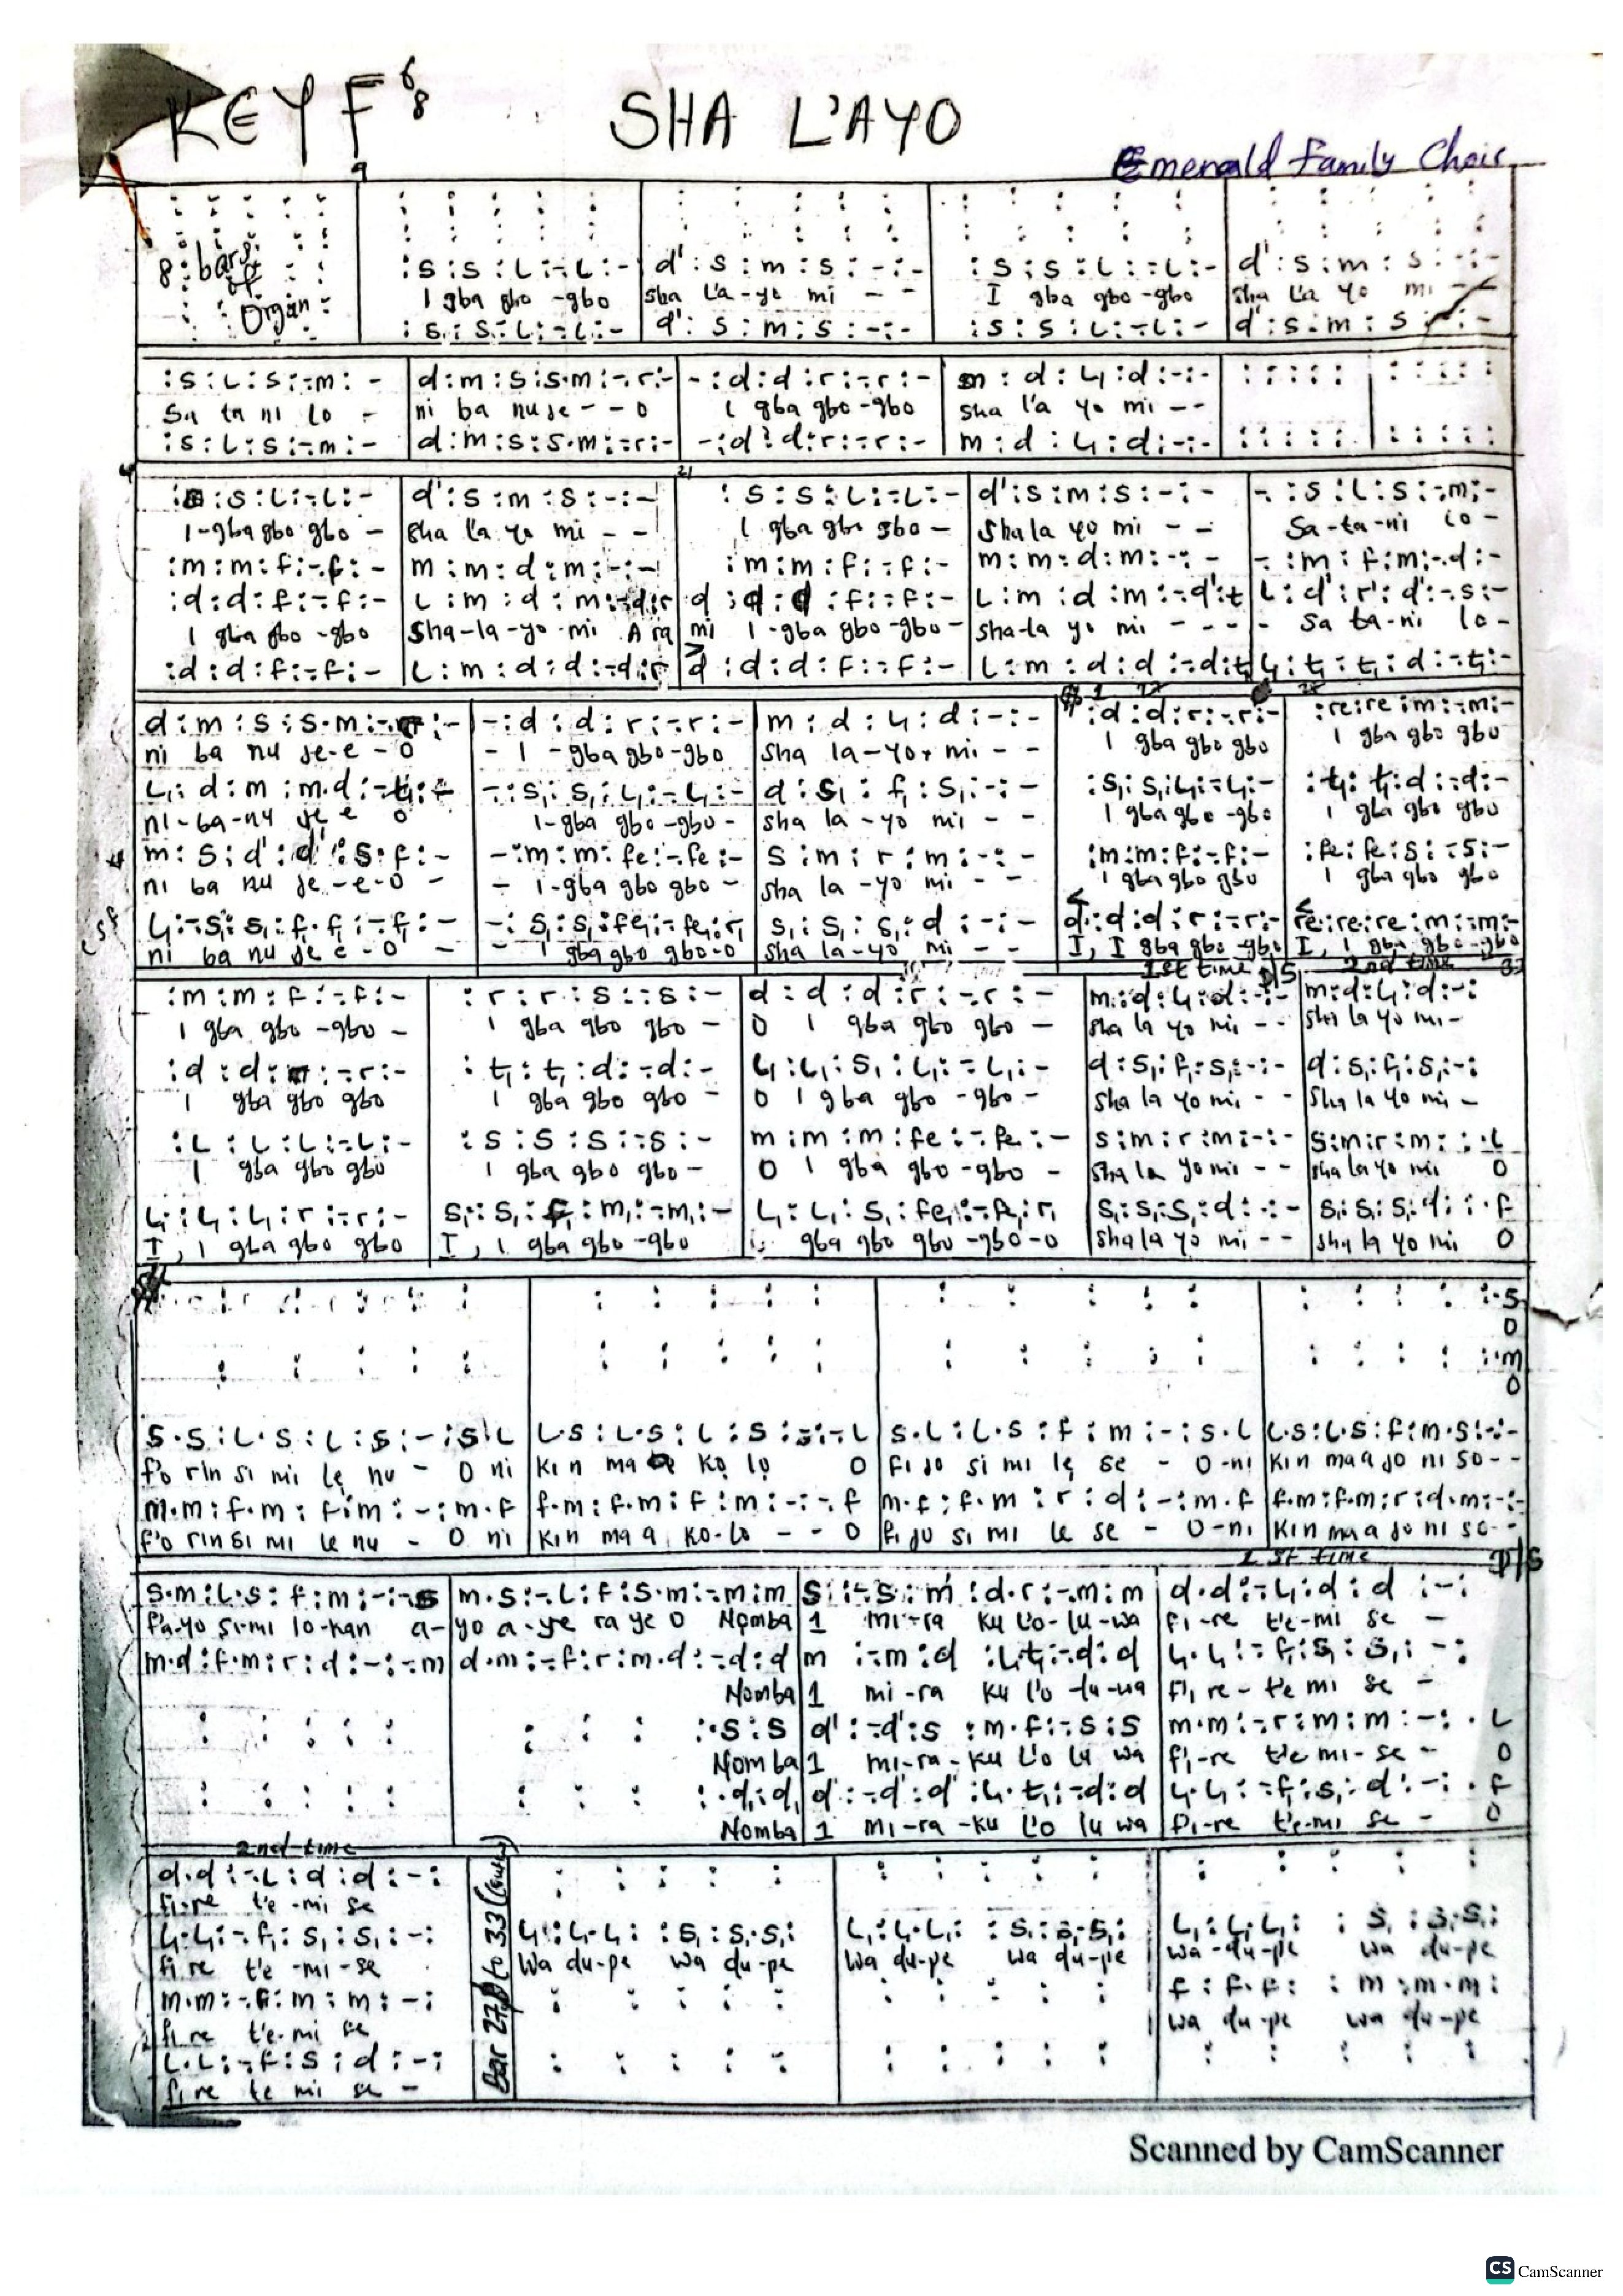 KEY F 6/8 SHA L'AYO
Emerald Family Choir
9
8 bars of Organ
: s : s : l : - l : - | d' : s : m : s : - : - | : s : s : l : - l : - | d' : s : m : s : - : -
I gba gbo - gbo | sha l'a - yo mi - - | I gba gbo - gbo | sha l'a yo mi - -
: s : s : l : - l : - | d' : s : m : s : - : - | : s : s : l : - l : - | d' : s : m : s : - : -
: s : l : s : - m : - | d : m : s : s . m : - r : - | - : d : d : r : - r : - | m : d : l₁ : d : - : -
Sa ta ni lo - | ni ba nu je - - o | I gba gbo - gbo | sha l'a yo mi - -
: s : l : s : - m : - | d : m : s : s . m : - r : - | - : d : d : r : - r : - | m : d : l₁ : d : - : -
21
: s : l : - l : - | d' : s : m : s : - : - | : s : s : l : - l : - | d' : s : m : s : - : - | - : s : l : s : - m : -
I - gba gbo gbo - | sha l'a yo mi - - | I gba gbo gbo - | Sha la yo mi - - | Sa - ta - ni lo -
: m : m : f : - f : - | m : m : d : m : - : - | : m : m : f : - f : - | m : m : d : m : - : - | - : m : f : m : - d : -
: d : d : f : - f : - | l : m : d : m : - d : r | d : d : d : f : - f : - | l : m : d : m : - d' : t | l : d' : r' : d' : - s : -
I gba gbo - gbo | Sha - la - yo - mi A ra | mi I - gba gbo - gbo - | sha - la yo mi - - - | - Sa ta - ni lo -
: d : d : f : - f : - | l : m : d : d : - d : r | d : d : d : f : - f : - | l : m : d : d : - d : t₁ | l₁ : t₁ : t₁ : d : - t₁ : -
d : m : s : s . m : - r : - | - : d : d : r : - r : - | m : d : l₁ : d : - : - | : d : d : r : - r : - | : re : re : m : - m : -
ni ba nu je - e - o | - I - gba gbo - gbo | sha la - yo mi - - | I gba gbo gbo | I gba gbo gbo
l₁ : d : m : m . d : - t₁ : - | - : s₁ : s₁ : l₁ : - l₁ : - | d : s₁ : f₁ : s₁ : - : - | : s₁ : s₁ : l₁ : - l₁ : - | : t₁ : t₁ : d : - d : -
ni - ba - nu je e o | I - gba gbo - gbo - | sha la - yo mi - - | I gba gbo - gbo | I gba gbo gbo
m : s : d' : d' : s . f : - | - : m : m : fe : - fe : - | s : m : r : m : - : - | : m : m : f : - f : - | : fe : fe : s : - s : -
ni ba nu je - e - o - | - I - gba gbo gbo - | sha la - yo mi - - | I gba gbo gbo | I gba gbo gbo
l₁ : - s₁ : s₁ : f . f₁ : - f₁ : - | - : s₁ : s₁ : fe₁ : - fe₁ : r₁ | s₁ : s₁ : s₁ : d : - : - | d : d : d : r : - r : - | re : re : re : m : - m : -
ni ba nu je e - o - | - I gba gbo gbo - o | sha la - yo mi - - | I, I gba gbo - gbo | I, I gba gbo - gbo
1st time D/S 2nd time 33
: m : m : f : - f : - | : r : r : s : - s : - | d : d : d : r : - r : - | m : d : l₁ : d : - : - | m : d : l₁ : d : - :
I gba gbo - gbo - | I gba gbo gbo - | O I gba gbo gbo - | sha la yo mi - - | sha la yo mi -
: d : d : r : - r : - | : t₁ : t₁ : d : - d : - | l₁ : l₁ : s₁ : l₁ : - l₁ : - | d : s₁ : f₁ : s₁ : - : - | d : s₁ : f₁ : s₁ : - :
I gba gbo gbo | I gba gbo gbo - | O I gba gbo - gbo - | sha la yo mi - - | sha la yo mi -
: l : l : l : - l : - | : s : s : s : - s : - | m : m : m : fe : - fe : - | s : m : r : m : - : - | s : m : r : m : : . l
I gba gbo gbo | I gba gbo gbo - | O I gba gbo - gbo - | sha la yo mi - - | sha la yo mi O
l₁ : l₁ : l₁ : r : - r : - | s₁ : s₁ : f₁ : m₁ : - m₁ : - | l₁ : l₁ : s₁ : fe₁ : - fe₁ : r₁ | s₁ : s₁ : s₁ : d : - : - | s₁ : s₁ : s₁ : d : : . f
I, I gba gbo gbo | I, I gba gbo - gbo | gba gbo gbo - gbo - o | sha la yo mi - - | sha la yo mi O
: . s
O
: . m
O
s . s : l . s : l : s : - : s . l | l . s : l . s : l : s : - : - l | s . l : l . s : f : m : - : s . l | l . s : l . s : f : m . s : - : -
f'o rin si mi lẹ nu - O ni | kin ma a kọ lọ O | fi jo si mi lẹ se - O - ni | kin ma a jo ni so - -
m . m : f . m : f : m : - : m . f | f . m : f . m : f : m : - : - f | m . f : f . m : r : d : - : m . f | f . m : f . m : r : d . m : - : -
f'o rin si mi le nu - O ni | kin ma a ko - lo - - O | fi jo si mi le se - O - ni | kin ma a jo ni so - -
1st time D/S
s . m : l . s : f : m : - : - s | m . s : - l : f : s . m : - m : m | s : - s : m : d . r : - m : m | d . d : - l₁ : d : d : - :
fa - yo si mi lo - kan a - | yo a - ye ra ye o Nọmba | 1 mi - ra ku l'o - lu - wa | fi - re t'e - mi se -
m . d : f . m : r : d : - : - m | d . m : - f : r : m . d : - d : d | m : - m : d : l₁ . t₁ : - d : d | l₁ . l₁ : - f₁ : s₁ : s₁ : - :
Nomba | 1 mi - ra ku l'o - lu - wa | fi re - t'e mi se -
: . s : s | d' : - d' : s : m . f : - s : s | m . m : - r : m : m : - : . l
Nomba | 1 mi - ra - ku l'o lu wa | fi - re t'e mi - se - O
: . d₁ : d₁ | d' : - d' : d' : l₁ . t₁ : - d : d | l₁ . l₁ : - f₁ : s₁ : d : - : . f
Nomba | 1 mi - ra - ku l'o lu wa | fi - re t'e - mi se - O
2nd time
d . d : - l : d : d : - :
fi - re t'e - mi se
l₁ . l₁ : - f₁ : s₁ : s₁ : - : | l₁ : l₁ . l₁ : : s₁ : s₁ . s₁ : | l₁ : l₁ . l₁ : : s₁ : s₁ . s₁ : | l₁ : l₁ . l₁ : : s₁ : s₁ . s₁ :
fi re t'e - mi - se | Wa du - pe wa du - pe | wa du - pe wa du - pe | wa - du - pe wa du - pe
m . m : - f : m : m : - : | f : f . f : : m : m . m :
fi re t'e - mi se | wa du - pe wa du - pe
l . l : - f : s : d : - :
fi re te mi se -
Bar 27 to 33
Scanned by CamScanner
CS CamScanner